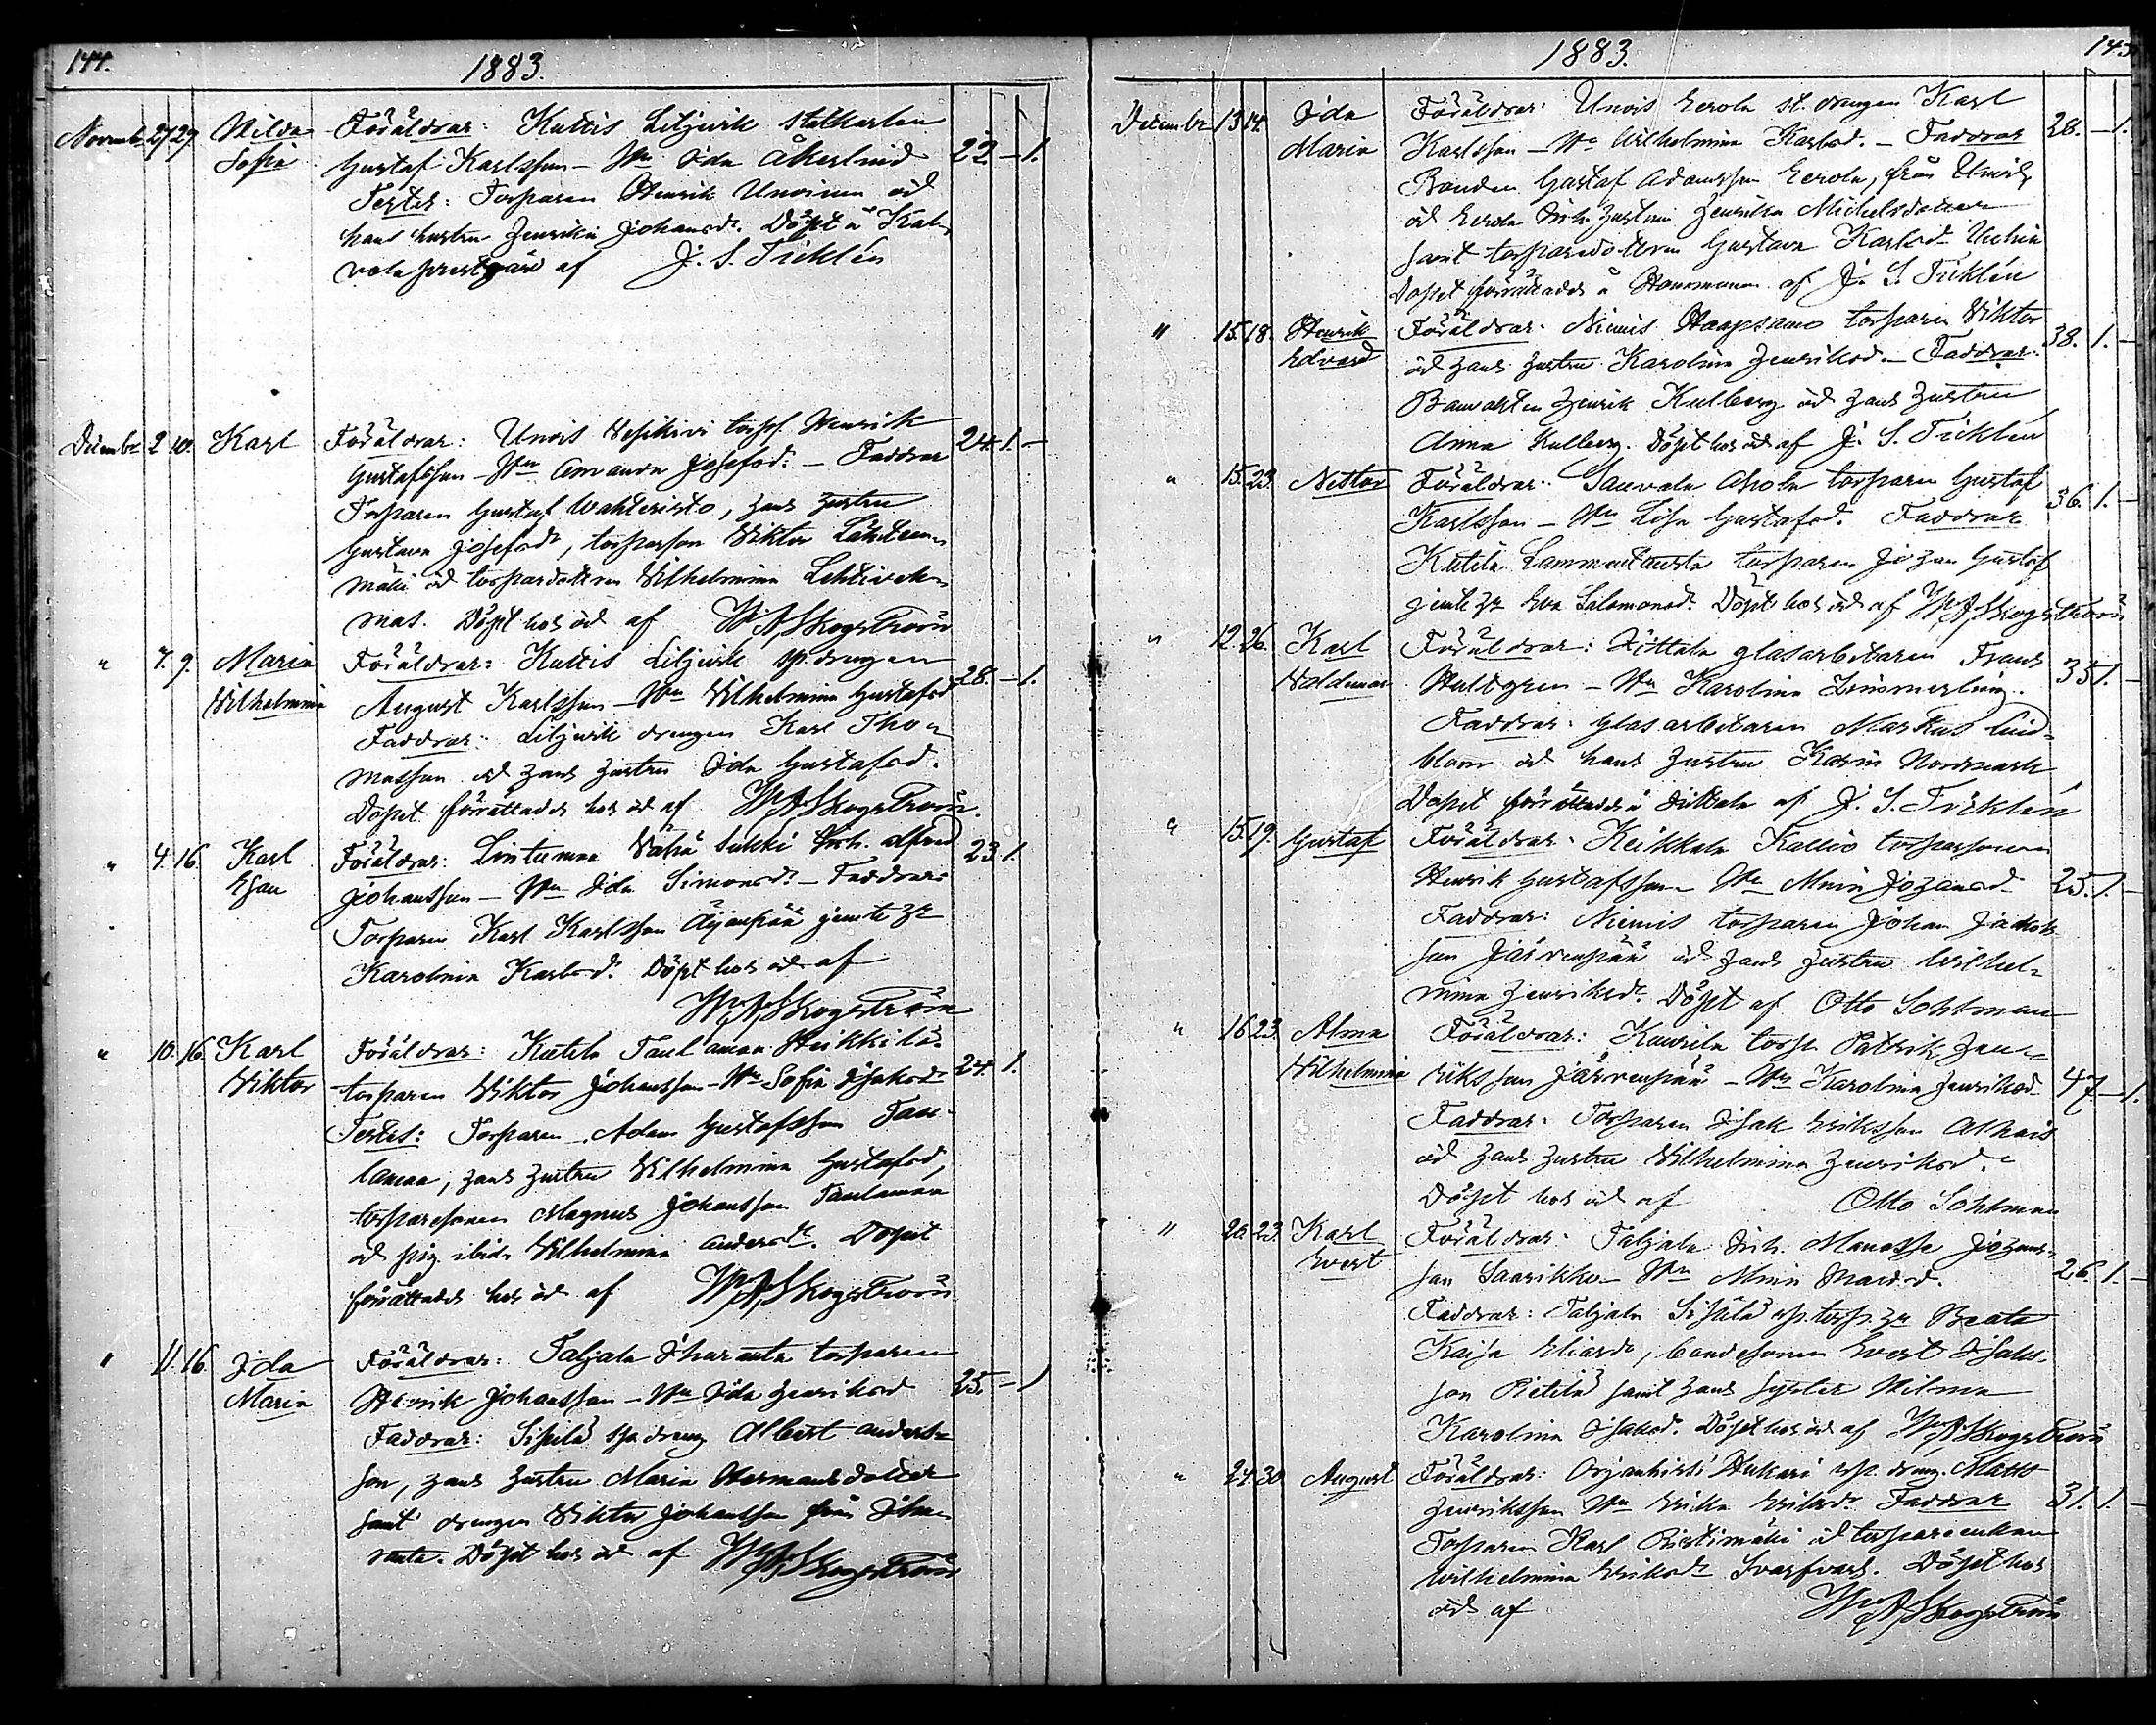 144.
1883.
Novemb. 27 29. Hilda Föräldrar: Kuttis Liljevik statkarlen
Sofia Gustaf Karlsson – Hn Ida Åkerlind 22 – 1.
Testes: Torparen Henrik Unoinen och
hans hustru Henrika Johansdr. Döpt å Kal-
vola prestgård af J. S. Ticklén
Decembr 2 10. Karl Föräldrar: Unois torp. Henrik 24. 1. –
Gustafsson – Hn Amanda Josefsd. – Faddrar
Torparen Gustaf Wahteristo, hans hustru
Gustava Josefsdr, torparson Viktor Lähteen-
mäki och torpardottren Vilhelmina
mas. Döpt hos od af W. A. Skogström
" 7. 9. Maria Föräldrar: Kuttis Liljevik sp. drengen
Vilhelmina August Karlsson – Hn Vilhelmina Gustafsd 28. – 1.
Faddrar: Liljevik drengen Karl Tho-
masson och hans hustru Ida Gustafsd.
Dopet förrättades hos od af W. A. Skogström.
" 4. 16. Karl Föräldrar: Lintumaa Vähä Sukki Alfred 23. 1.
Esau Johansson – Hn Ida Simonsdr – Faddrar
Torparen Karl Karlsson Äijänpää jemte hu
Karolina Karlsdr. Döpt hos od af
W. A. Skogström
" 10. 16. Karl Föräldrar: Kutila Taulamaa Heikkilä
Viktor torparen Viktor Johansson – Hn Sofia Isaksdr 24 1.
Testes: Torparen Adam Gustafsson Tau-
lamaa, hans hustru Vilhelmina Gustafsd,
torparesonen Magnus Johansson Taulamaa
och pig. ibid. Vilhelmina Andersdr. Dopet
förrättades hos od af W. A. Skogström
" 11. 16. Ida Föräldrar: Taljala Iharanta torparen
Maria Henrik Johansson – Hn Ida Henriksd 25. – 1
Faddrar: Sipilä sp. dreng Albert Anders-
son, hans hustru Maria Hermansdotter
samt drengen Viktor Johansson från Iha-
ranta. Döpt hos od af W. A. Skogström
1883.
145
Decembr 13 14. Ida Föräldrar: Unois Eerola st. drengen Karl 28. – 1.
Maria Karlsson – Hn Wilhelmina Karlsd. – Faddrar
Bonden Gustaf Adamsson Eerola, från Unois
och Eerola hustru Henrika Michelsdotter
samt torparedottren Gustava Karlsd
Dopet förrättades å af J. S. Ticklén
" 15. 18. Henrik Föräldrar: Niemis Haapsamo torparen Viktor 38. 1. –
Edvard och hans hustru Karolina Henriksd. – Faddrar
Banvakten Henrik Kulberg och hans hustru
Anna Kulberg. Döpt hos od af J. S. Ticklén
" 15. 23. Nestor Föräldrar: Sauvala Ahola torparen Gustaf
Karlsson – Hn Lisa Gustafsd. Faddrar 36. 1. –
Kutila Lammentausta torparen Johan Gustaf
jemte hu Eva Salomonsdr. Döpt hos od af W. A. Skogström
" 12. 26. Karl Föräldrar: Iittala glasarbetaren Frans
Valdemar Hultgren – Hn Karolina Zimmerling. 35 1. –
Faddrar: Glasarbetaren Markus Lind-
blom och hans hustru Karin Nordmark
Dopet förrättades i Iittala af J. S. Ticklén
" 15. 19. Gustaf Föräldrar: Keikkala Kallio torparsonen
Henrik Gustafsson – Hn Mina Johansd 25. 1. –
Faddrar: Niemis torparen Johan Jakobs-
son Järvenpää och hans hustru Wilhel-
mina Henriksdr. Döpt af Otto Sohlman
" 16 23. Alma Föräldrar: Kanvila torp. Patrik Hen-
Vilhelmina riksson Järvenpää – Hn Karolina Henriksd 47 – 1.
Faddrar: Torparen Isak Eriksson Alhais
och hans hustru Vilhelmina Henriksdr.
Döpt hos od af Otto Sohlman
" 20. 23. Karl Föräldrar: Taljala Manasse Johans-
Evert son Saarikko – Hn Mina 26. 1. –
Faddrar: Taljala Sipilä sp. torp. hu Beata
Kaisa Eliasdr, bondesonen Evert Isaks-
son Pietilä samt hans syster Hilma
Karolina Isaksd. Döpt hos od af W. A. Skogström
" 24. 30. August Föräldrar: Orjanhirsi Hukari sp. dreng. Matts
Henriksson Hn Erika Eriksdr. Faddrar 31. 1. –
Torparen Karl Ristimäki och torpareenkan
Wilhelmina Eriksdr Svarfvars. Döpt hos
od af W. A. Skogström